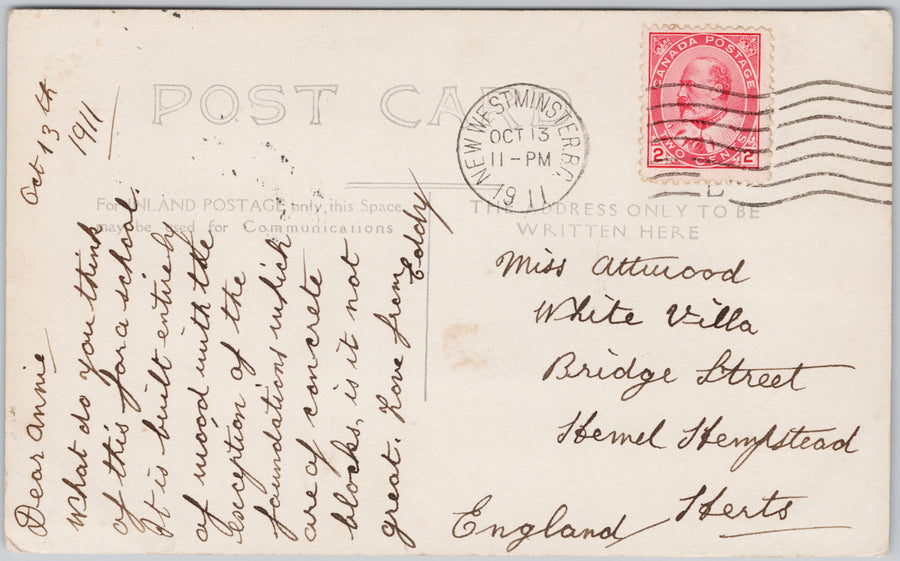 POST CARD
For INLAND POSTAGE only, this Space
may be used for Communications
THE ADDRESS ONLY TO BE
WRITTEN HERE
CANADA POSTAGE
2 TWO CENTS 2
NEW WESTMINSTER. B.C.
OCT 13
11-PM
19 11
Oct 13th
1911
Dear Annie
What do you think
of this for a school.
It is built entirely
of wood with the
exception of the
foundations which
are of concrete
blocks, is it not
great. Love from
Eddy
Miss Attwood
White Villa
Bridge Street
Hemel Hempstead
Herts
England